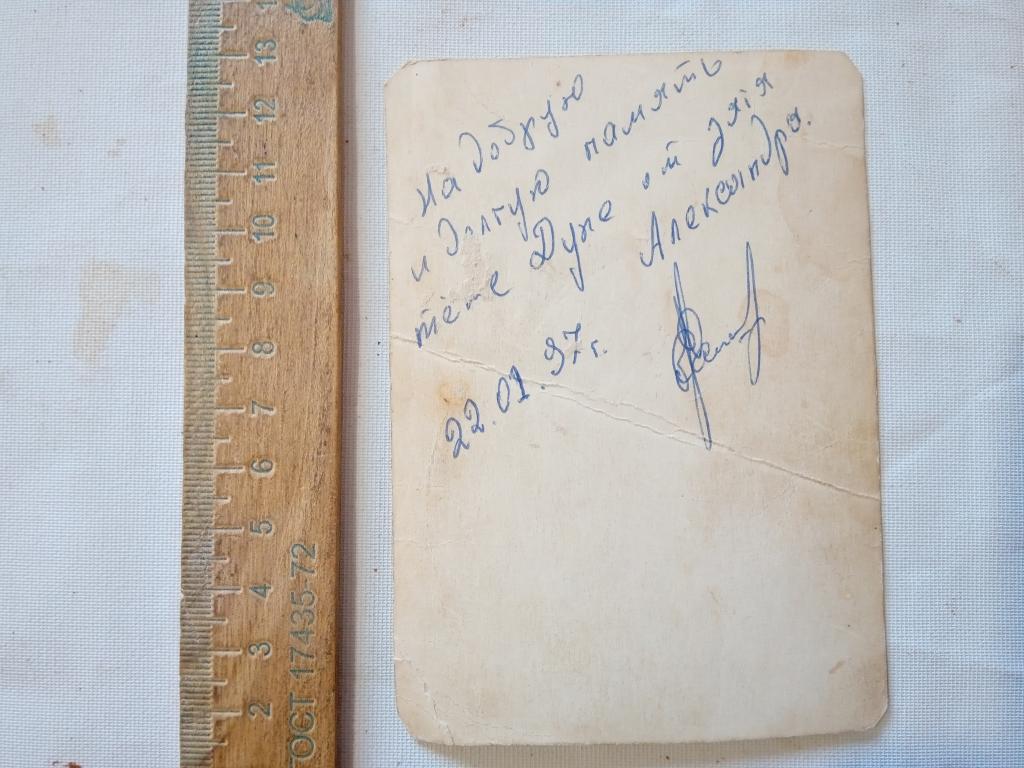 На добрую
и долгую память
тёте Дусе от дяія
Александра.
22.01.97г.
13
12
11
10
9
8
7
6
5
4
3
2
ГОСТ 17435-72